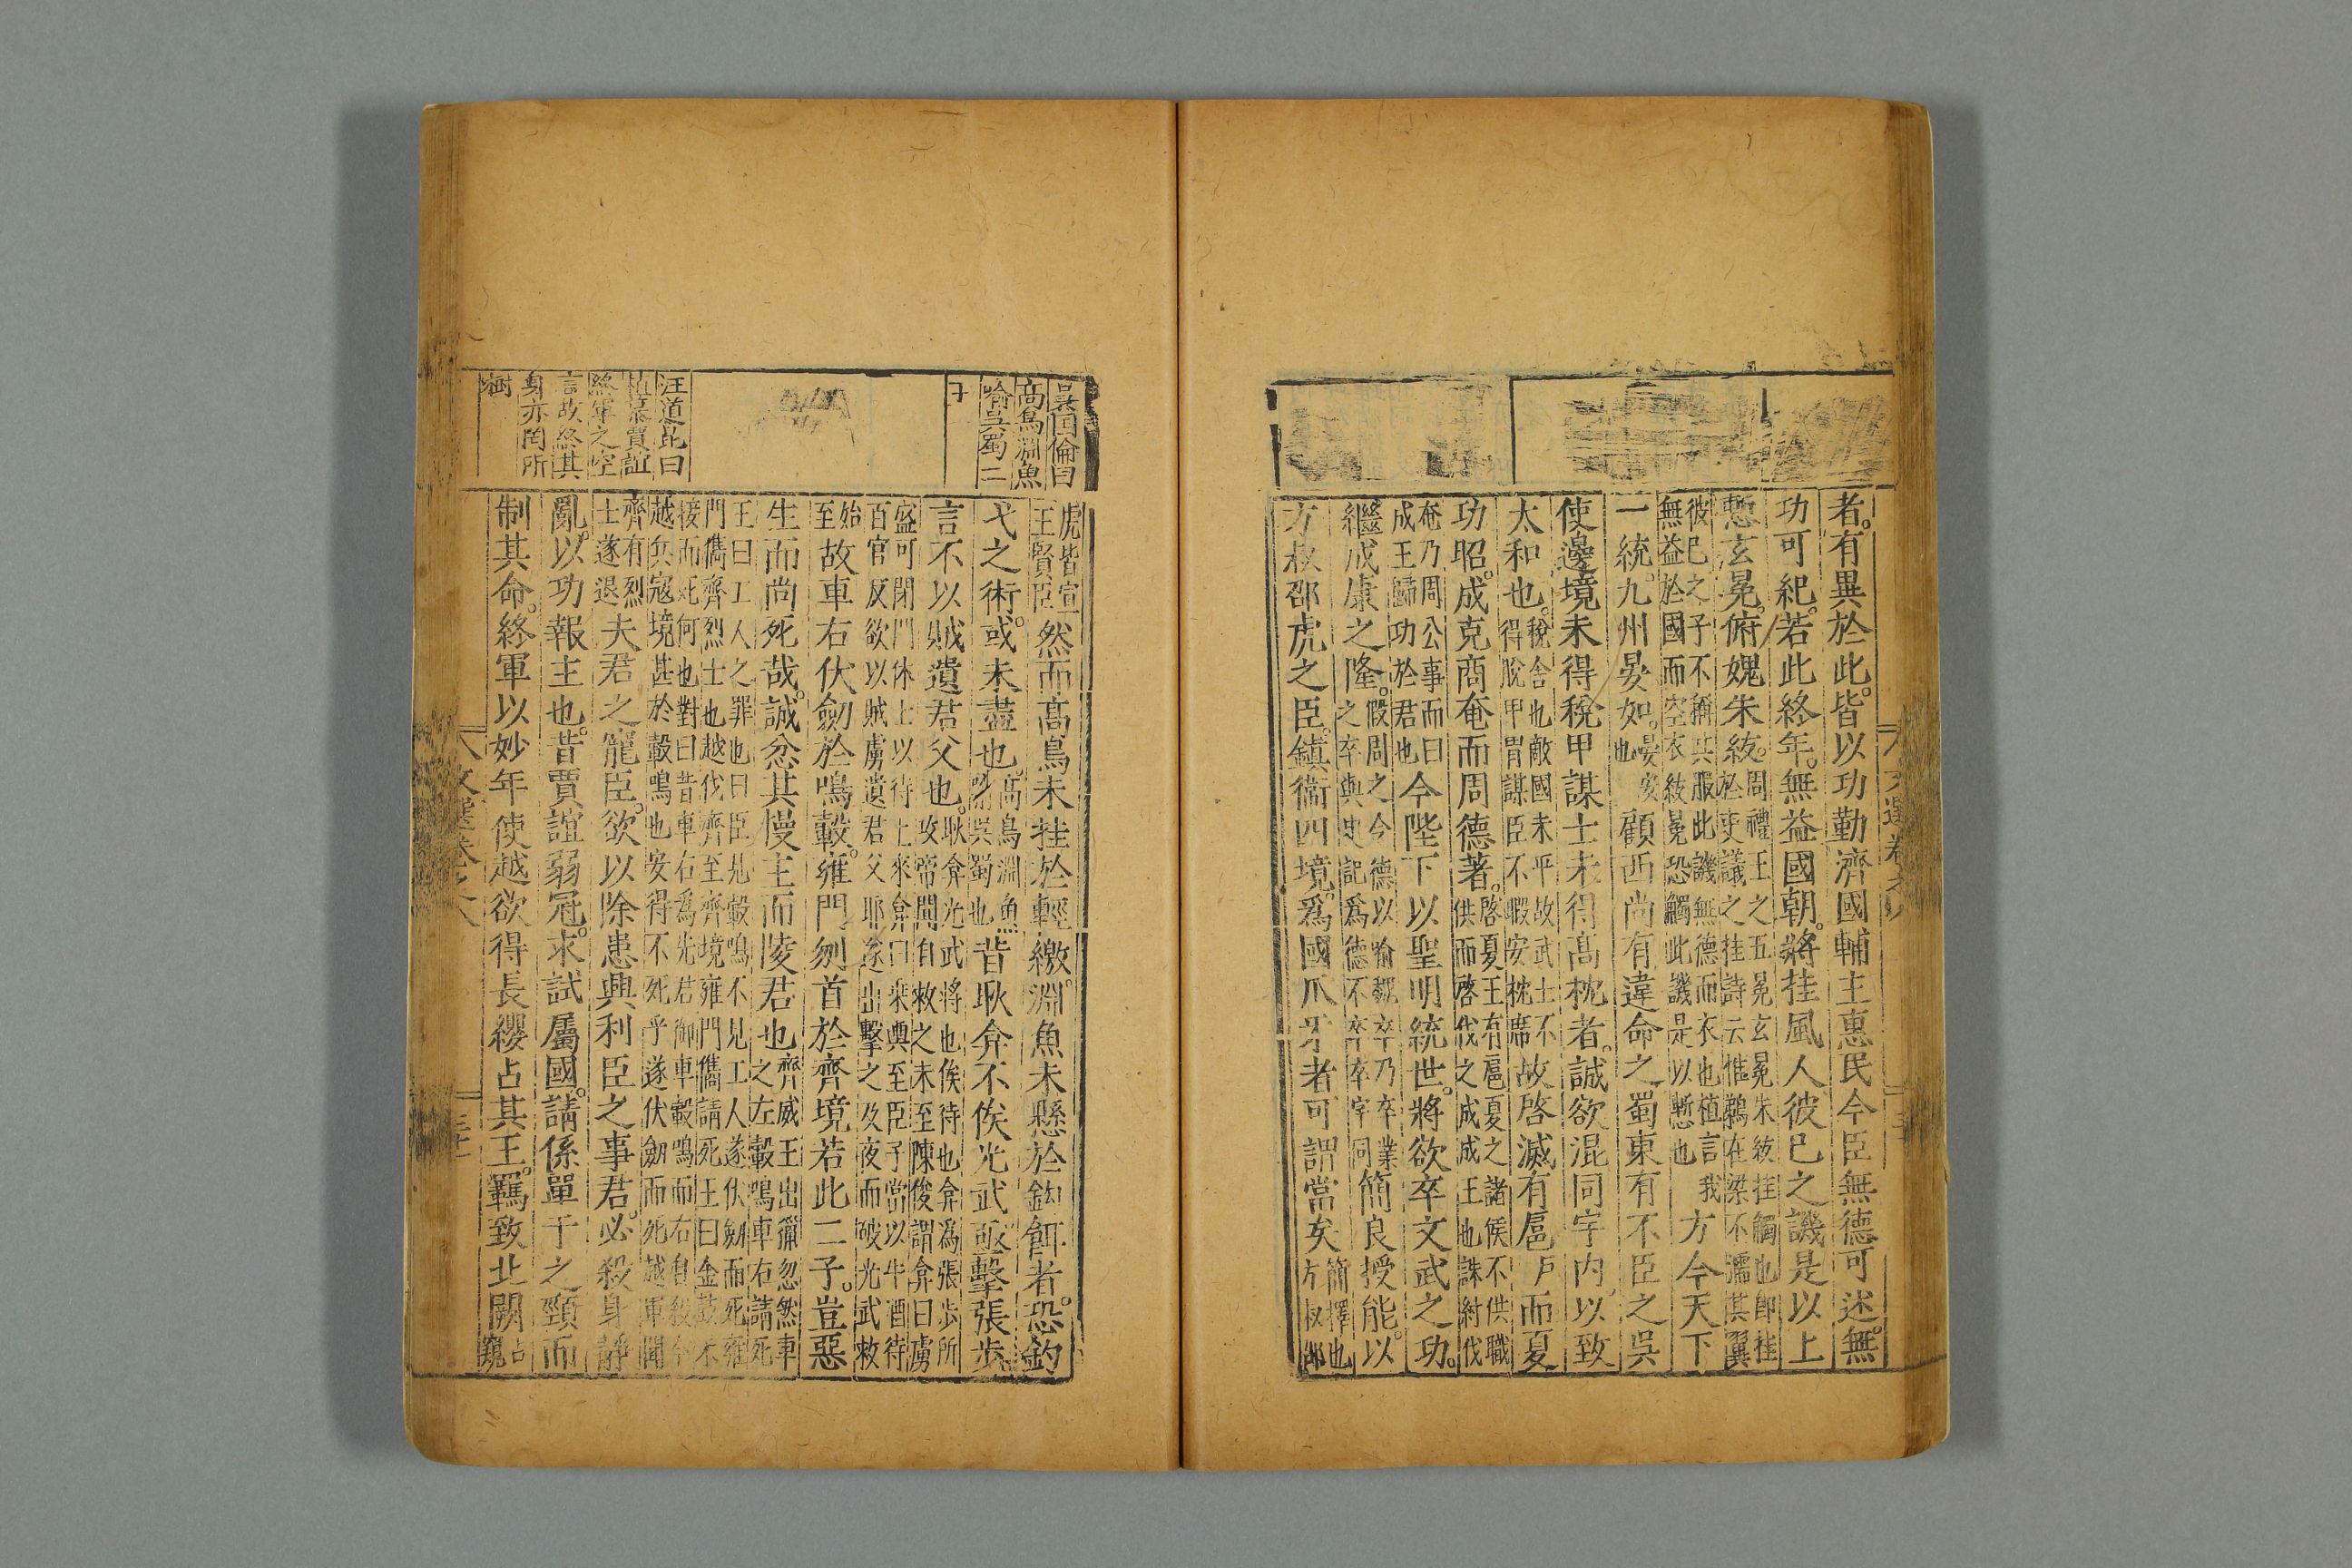 者。有異於此。皆以功勤濟國輔主惠民今臣無德可述。無
功可紀。若此終年。無益國朝。將挂風人彼已之譏是以上
慙玄冕。俯媿朱紱。周禮王之五冕玄冕朱紱挂觸也即挂於吏議之挂詩云惟鵜在梁不濡其翼
彼已之子不稱其服此譏無德而衣也植言我無益於國而空衣紱冕恐觸此譏是以慙也方今天下
一統。九州晏如。晏安也顧西尚有違命之蜀東有不臣之吳
使邊境未得稅甲謀士未得高枕者。誠欲混同宇內以致
太和也。稅舍也敵國未平故武士不得脫甲冑謀臣不暇安枕席故啓滅有扈戶而夏
功昭。成克商奄而周德著。啓夏王有扈夏之諸侯不供職供而啓伐之成成王也誅紂伐
奄乃周公事而曰成王歸功於君也今陛下以聖明統世。將欲卒文武之功。
繼成康之隆。假周之今德以喻魏卒乃卒業之卒與史記爲德不卒卒字同簡良授能。以
方叔邵虎之臣。鎮衛四境。爲國爪牙者可謂當矣簡擇也方叔邵
文選卷之八
吳囯倫曰
高鳥淵魚
喻吳蜀二
子
汪道昆曰
植慕賈誼
終軍之空
言故終其
身亦罔所
樹
虎皆宣王賢臣然而高鳥未挂於輕繳。淵魚未懸於鈎餌者。恐釣
弋之術。或未盡也。高鳥淵魚喻吳蜀也昔耿弇不俟光武亟擊張步。
言不以賊遺君父也。耿弇光武將也俟待也弇為張步所攻帝聞自救之未至陳俊謂弇曰虜
盛可閉門休上以待上來弇曰乘輿至臣子當以牛酒待百官反欲以賊虜遺君父耶遂出擊之及夜而破光武救
始至故車右伏劒於鳴轂。雍門刎首於齊境若此二子。豈惡
生而尚死哉。誠忿其慢主而陵君也齊威王出獵忽然車之左轂鳴車右請死
王曰工人之罪也曰臣見轂鳴不見工人遂伏劒而死雍門儁齊烈士也越伐齊至齊境雍門儁請死王曰金鼓未
接而死何也對曰昔車右為先君御車轂鳴而右自殺今越兵寇境甚於轂鳴也安得不死乎遂伏劒而死越軍聞
齊有烈士遂退夫君之寵臣。欲以除患興利臣之事君。必殺身靜
亂。以功報主也。昔賈誼弱冠。求試屬國。請係單于之頸而
制其命。終軍以妙年使越欲得長纓占其王。羈致北闕占窺
文選卷之八